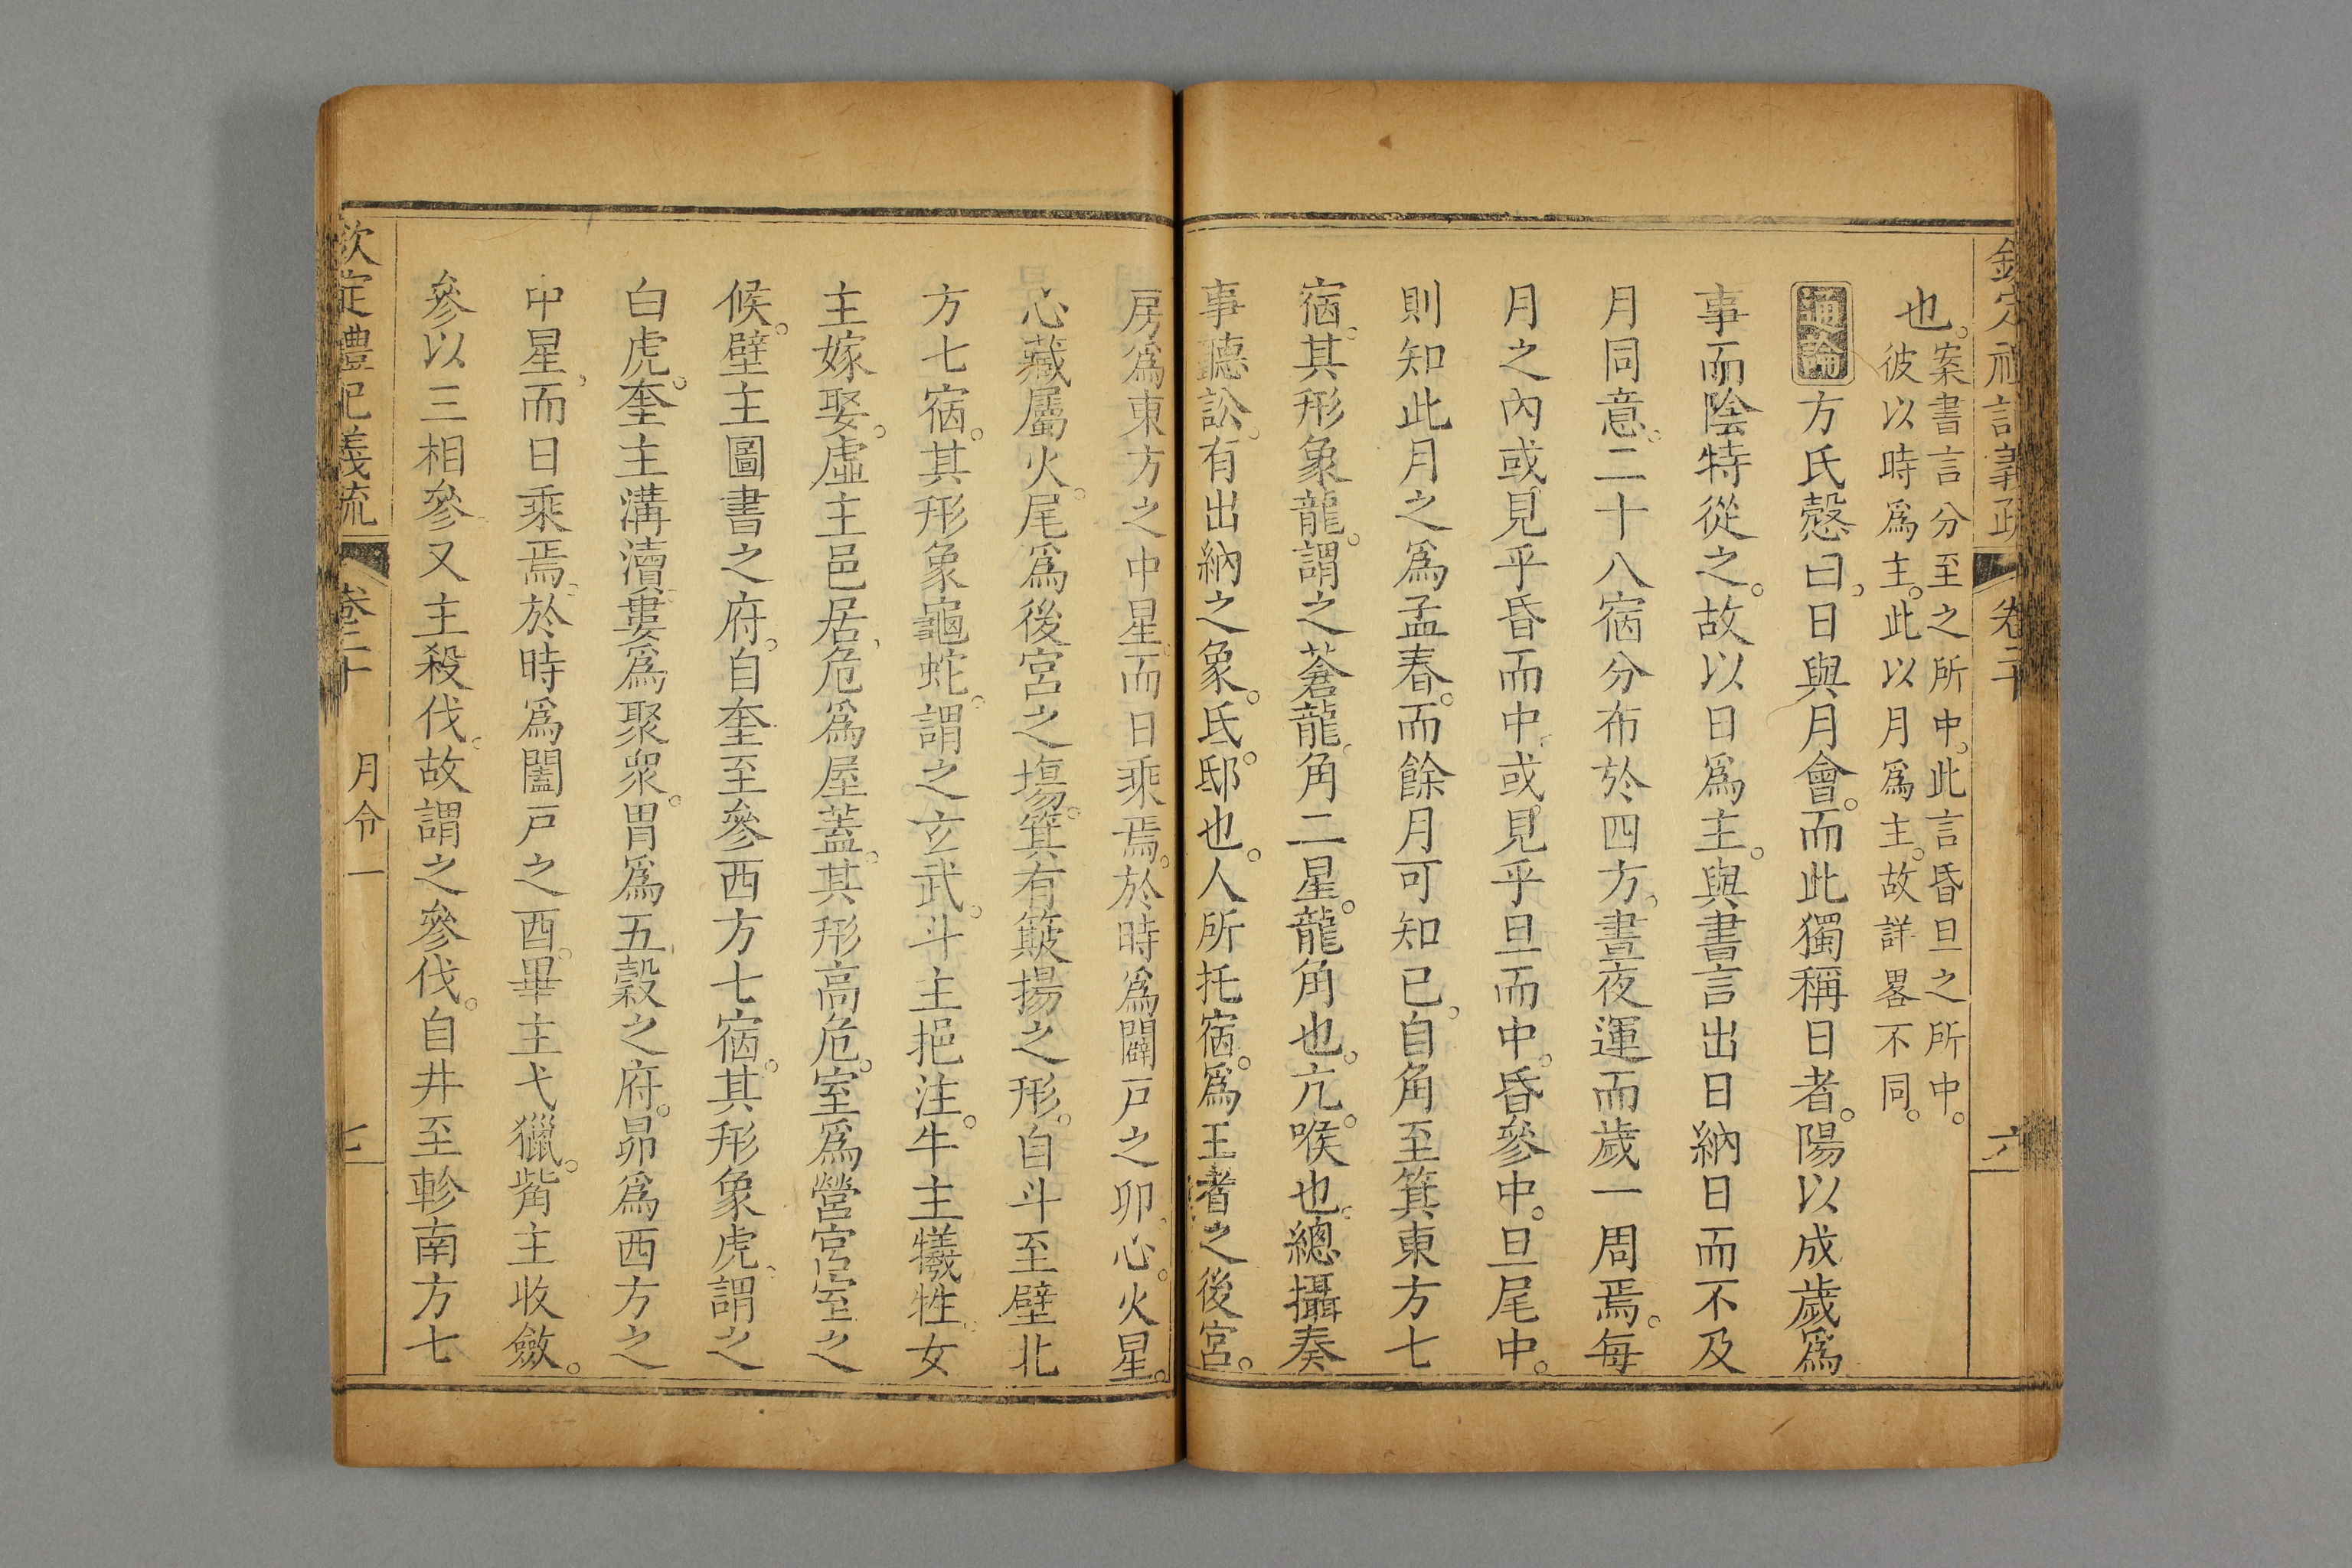 欽定禮記義疏 卷二十 六
也。案書言分至之所中。此言昏旦之所中。
彼以時爲主。此以月爲主。故詳畧不同。
通論 方氏慤曰、日與月會。而此獨稱日者。陽以成歲爲
事而陰特從之。故以日爲主。與書言出日納日而不及
月同意。二十八宿分布於四方。晝夜運而歲一周焉。每
月之內或見乎昏而中。或見乎旦而中。昏參中。旦尾中。
則知此月之爲孟春。而餘月可知已。自角至箕東方七
宿。其形象龍。謂之蒼龍。角二星。龍角也。亢。喉也。總攝奏
事聽訟。有出納之象。氐。邸也。人所托宿。爲王者之後宮。
房爲東方之中星。而日乘焉。於時爲闢戶之卯。心。火星。
心藏屬火。尾爲後宮之塲。箕有簸揚之形。自斗至壁北
方七宿。其形象龜蛇。謂之玄武。斗主挹注。牛主犧牲。女
主嫁娶。虛主邑居、危爲屋蓋。其形高危。室爲營宮室之
候。壁主圖書之府。自奎至參西方七宿。其形象虎。謂之
白虎。奎主溝瀆。婁爲聚衆。胃爲五穀之府。昴爲西方之
中星、而日乘焉。於時爲闔戶之酉。畢主弋獵。觜主收斂。
參以三相參。又主殺伐。故謂之參伐。自井至軫南方七
欽定禮記義疏 卷二十 月令一 七